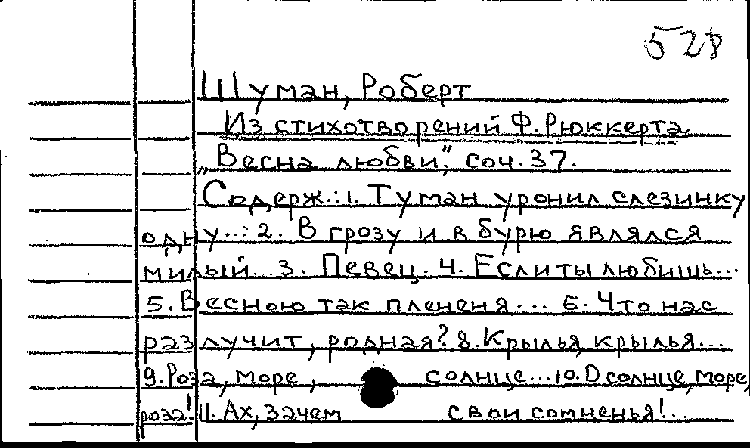 528
Шуман, Роберт
Из стихотворений Ф. Рюккерта
"Весна любви", соч. 37.
Содерж.: 1. Туман уронил слезинку
одну...: 2. В грозу и в бурю являлся
милый... 3. Певец. 4. Если ты любишь...
5. Весною так пленен я... 6. Что нас
разлучит, родная? 8. Крылья, крылья...
9. Роза, море, солнце... 10. О солнце, море,
роза! 11. Ах, зачем свои сомненья!..